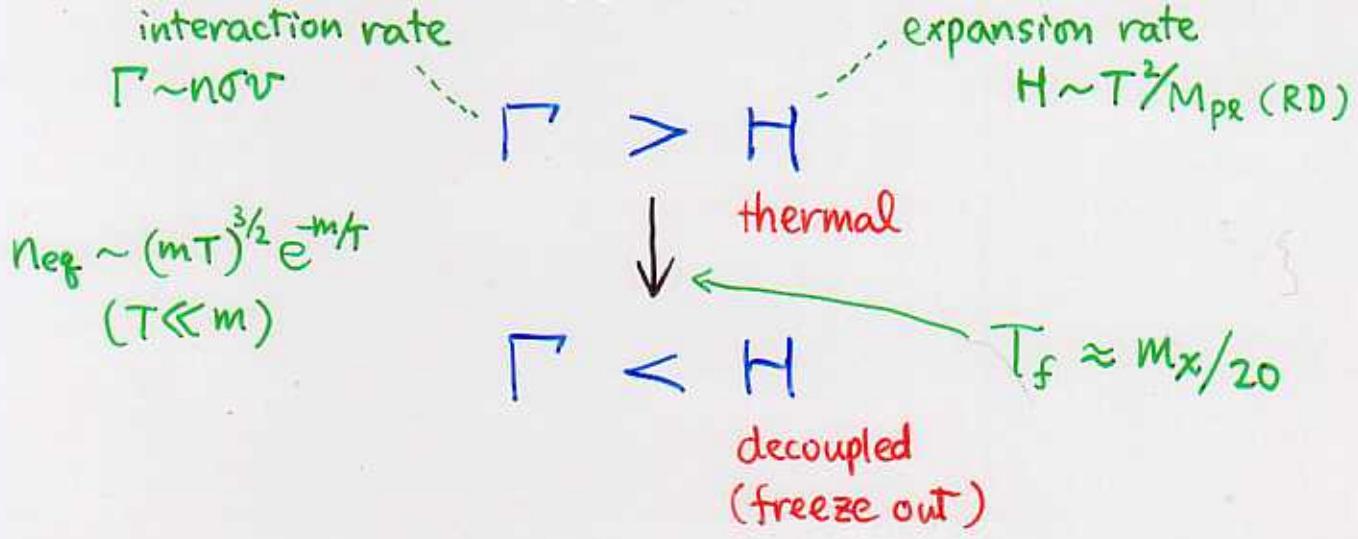 interaction rate
Γ~nσv
expansion rate
H~T²/Mpl (RD)
Γ > H
thermal
neq ~ (mT)^3/2 e^-m/T
(T≪m)
Tf ≈ mχ/20
Γ < H
decoupled
(freeze out)